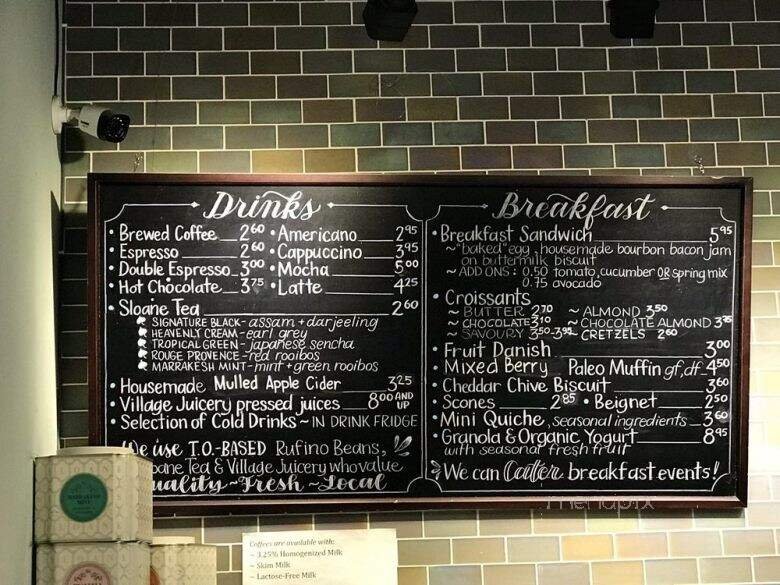 Drinks
Brewed Coffee 2.60 • Americano 2.95
Espresso 2.60 • Cappuccino 3.95
Double Espresso 3.00 • Mocha 5.00
Hot Chocolate 3.75 • Latte 4.25
Sloane Tea 2.60
SIGNATURE BLACK - assam + darjeeling
HEAVENLY CREAM - earl grey
TROPICAL GREEN - japanese sencha
ROUGE PROVENCE - red rooibos
MARRAKESH MINT - mint + green rooibos
• Housemade Mulled Apple Cider 3.25
• Village Juicery pressed juices 8.00 AND UP
• Selection of Cold Drinks ~ IN DRINK FRIDGE
We use T.O.-BASED Rufino Beans,
Sloane Tea & Village Juicery who value
Quality ~ Fresh ~ Local
Breakfast
• Breakfast Sandwich 5.95
~ "baked" egg, housemade bourbon bacon jam
on buttermilk biscuit
~ ADD ONS: 0.50 tomato, cucumber OR spring mix
0.75 avocado
• Croissants
~ BUTTER 2.70 ~ ALMOND 3.50
~ CHOCOLATE 3.10 ~ CHOCOLATE ALMOND 3.75
~ SAVOURY 3.50-3.95 ~ CRETZELS 2.60
• Fruit Danish 3.00
• Mixed Berry Paleo Muffin gf, df 4.50
• Cheddar Chive Biscuit 3.60
• Scones 2.85 • Beignet 2.50
• Mini Quiche, seasonal ingredients 3.60
• Granola & Organic Yogurt 8.95
with seasonal fresh fruit
We can Cater breakfast events!
menupix
Coffees are available with:
~ 3.25% Homogenized Milk
~ Skim Milk
~ Lactose-Free Milk
MARRAKESH
MINT